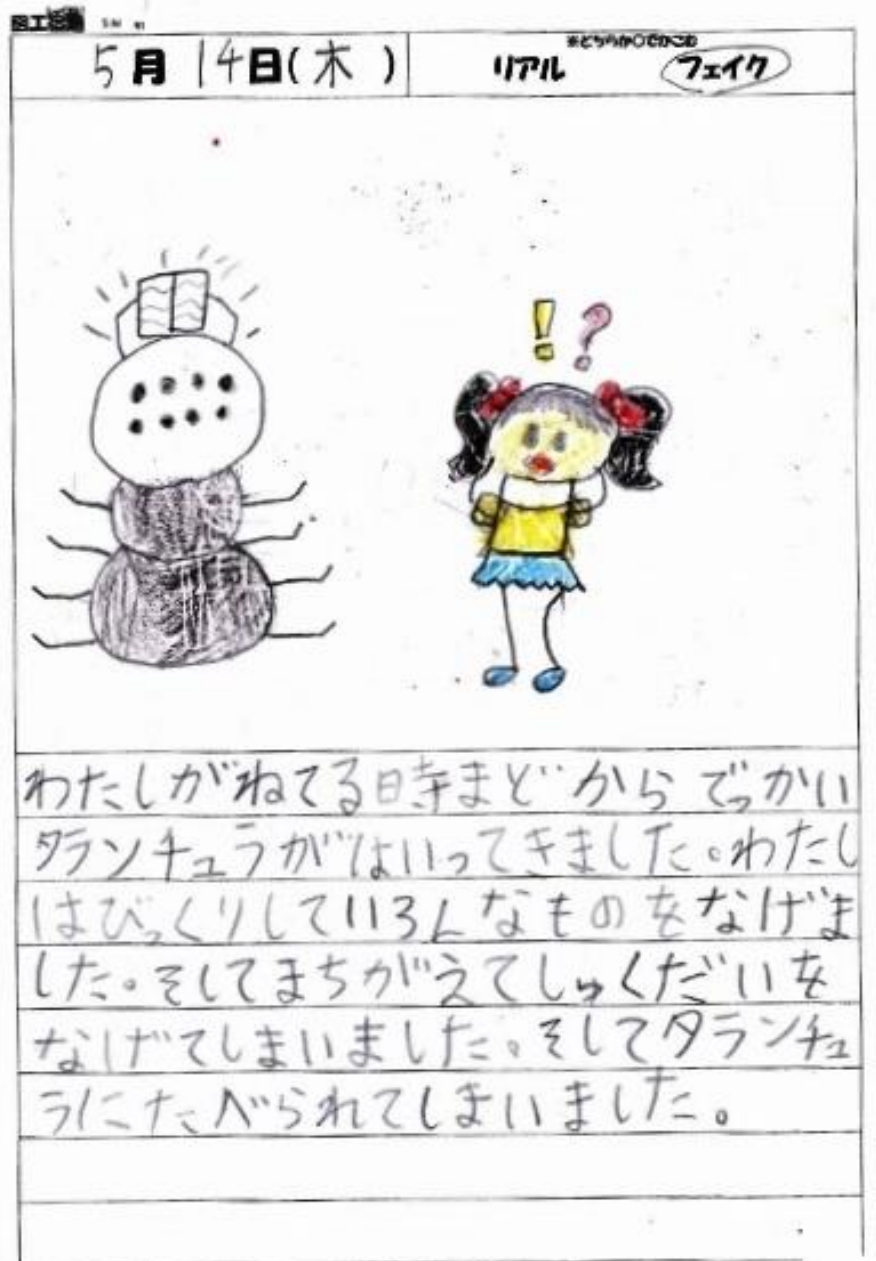 5月14日(木)
※どちらか○でかこむ
リアル フェイク
! ?
わたしがねてる時まどからでっかい
タランチュラがはいってきました。わたし
はびっくりしていろんなものをなげま
した。そしてまちがえてしゅくだいを
なげてしまいました。そしてタランチュ
ラにたべられてしまいました。